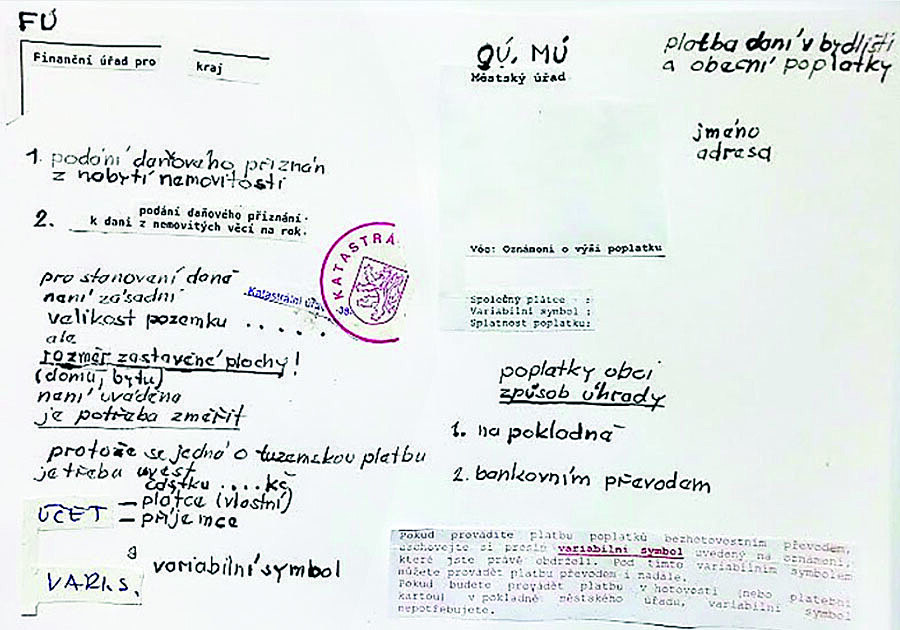 FÚ
Finanční úřad pro kraj
1. podání daňového přiznán
z nabytí nemovitostí
2. podání daňového přiznání
k dani z nemovitých věcí na rok.
KATASTRÁ
Katastrální
pro stanovaní daně
není zásadní
velikost pozemku . . . . . .
ale
rozměr zastavěné plochy!
(domu, bytu)
není uváděna
je potřeba změřit
protože se jedná o tuzemskou platbu
je třeba uvést
částku .... kč
ÚČET – plátce (vlastní)
– příjemce
a
VARI.S. variabilní symbol
OÚ, MÚ
Městský úřad
platba daní v bydlišti
a obecní poplatky
jméno
adresa
Věc: Oznámení o výši poplatku
Společný plátce :
Variabilní symbol :
Splatnost poplatku:
poplatky obci
způsob úhrady
1. na pokladně
2. bankovním převodem
Pokud provádíte platbu poplatků bezhotovostním převodem,
uschovejte si prosím variabilní symbol uvedený na oznámení,
které jste právě obdrželi. Pod tímto variabilním symbolem
můžete provádět platbu převodem i nadále.
Pokud budete provádět platbu v hotovosti (nebo platební
kartou) v pokladně městského úřadu, variabilní symbol
nepotřebujete.